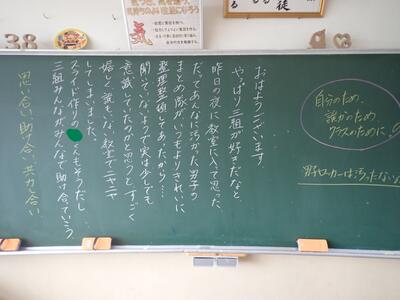 おはようございます。
やっぱり三組が好きだなと、
昨日の夜に教室に入って思った。
だってあんなに汚かった男子の
まとめ隊がいつもよりきれいに
整理整頓してあったから…
聞いてないようで実は少しでも
意識していたのかと思うと、すごく
嬉しく誰もいない教室でニヤニヤ
してしまいました。
スライド作りの
でもそうだし、
三組みんながみんなで助け合っていこう。
思い合い、助け合い、共力し合い
自分のため、
誰かのため、
クラスのために、
男子ロッカーは汚かったな